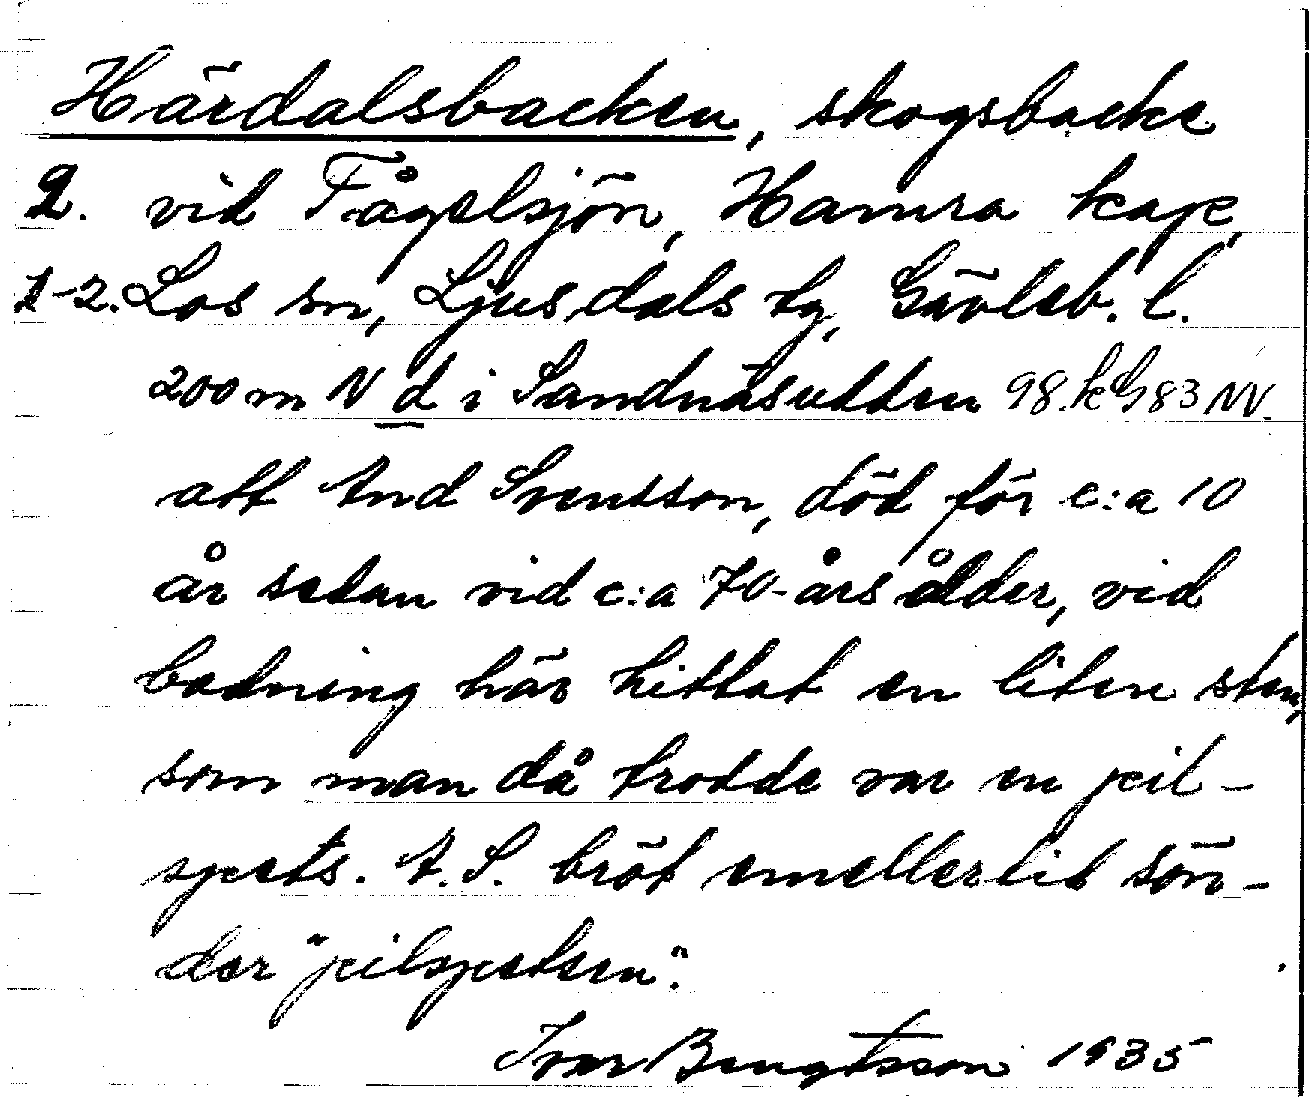 Härdalsbacken, skogsbacke
2. vid Fågelsjön, Hamra kap,
1-2. Los sn, Ljusdals tg, Gävleb. l.
200 m N d i Sandnäsudden 98.kG83NV.
att And Svensson, död för c:a 10
år sedan vid c:a 70-års ålder, vid
badning här hittat en liten sten,
som man då trodde var en pil-
spets. A. S. bröt emellertid sön-
der "pilspetsen".
Ivar Bengtsson 1935